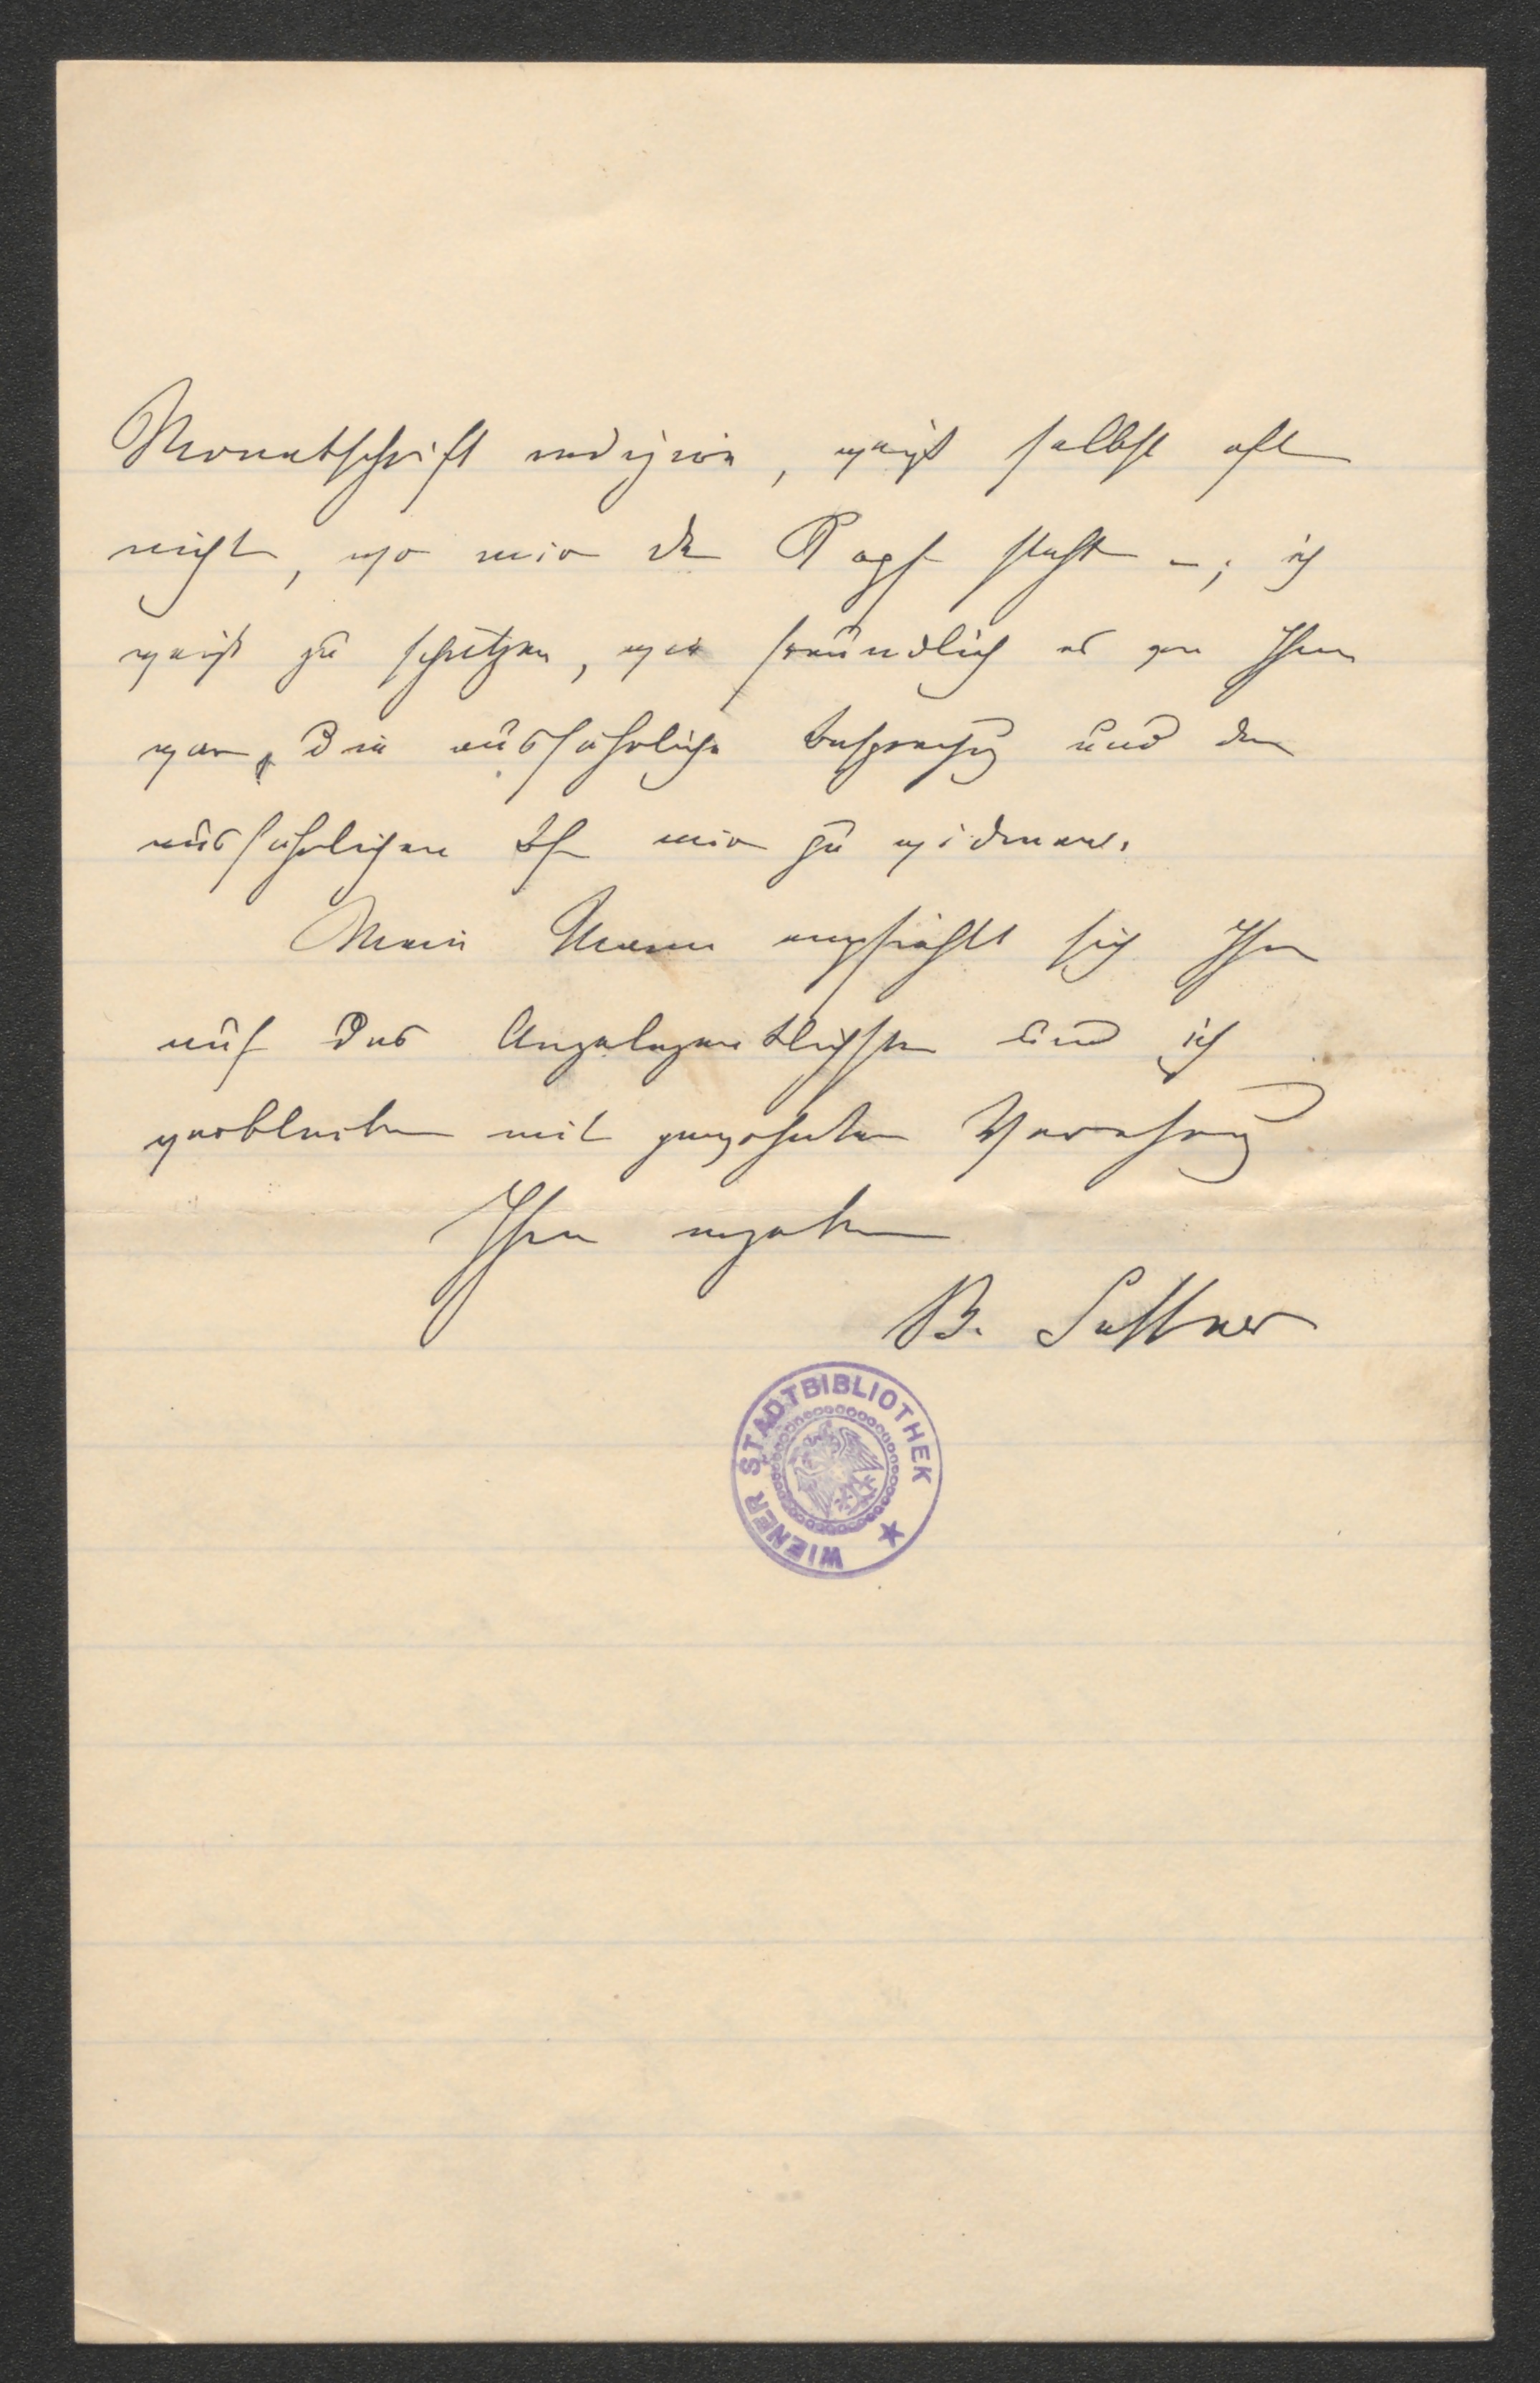 Monatschrift redigire, weiß selbst oft
nicht, wo mir der Kopf steht –; ich
weiß zu schätzen, wie freundlich es von Ihnen
war, die ausführliche Besprechg und den
ausführlichen Bf mir zu widmen.
Mein Mann empfiehlt sich Ihnen
auf das Angelegentlichste und ich
verbleibe mit Verehrg
Ihre ergebene
B. Suttner
WIENER STADTBIBLIOTHEK